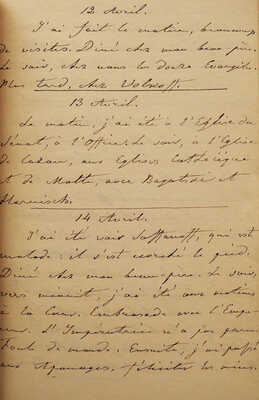 12 Avril.
J'ai fait le matin, beaucoup
de visites. Diné chez mon beau-père.
Le soir, chez nous les douze Evangiles.
Plus tard, chez Wolkoff.
13 Avril.
Le matin, j'ai été à l'Eglise du
Sénat, à l'Office. Le soir, à l'Eglise
de Cazan, aux Eglises Catholique
et de Malte, avec Bagatinsi et
14 Avril.
J'ai été voir qui est
malade: il s'est écorché le pied.
Diné chez mon beau-père. Le soir,
vers minuit, j'ai été aux matines
à la Cour. Embrassade avec l'Empe-
reur. L'Impératrice n'a pas paru.
Foule de monde. Ensuite, j'ai passé
aux Apanages, féliciter les miens.